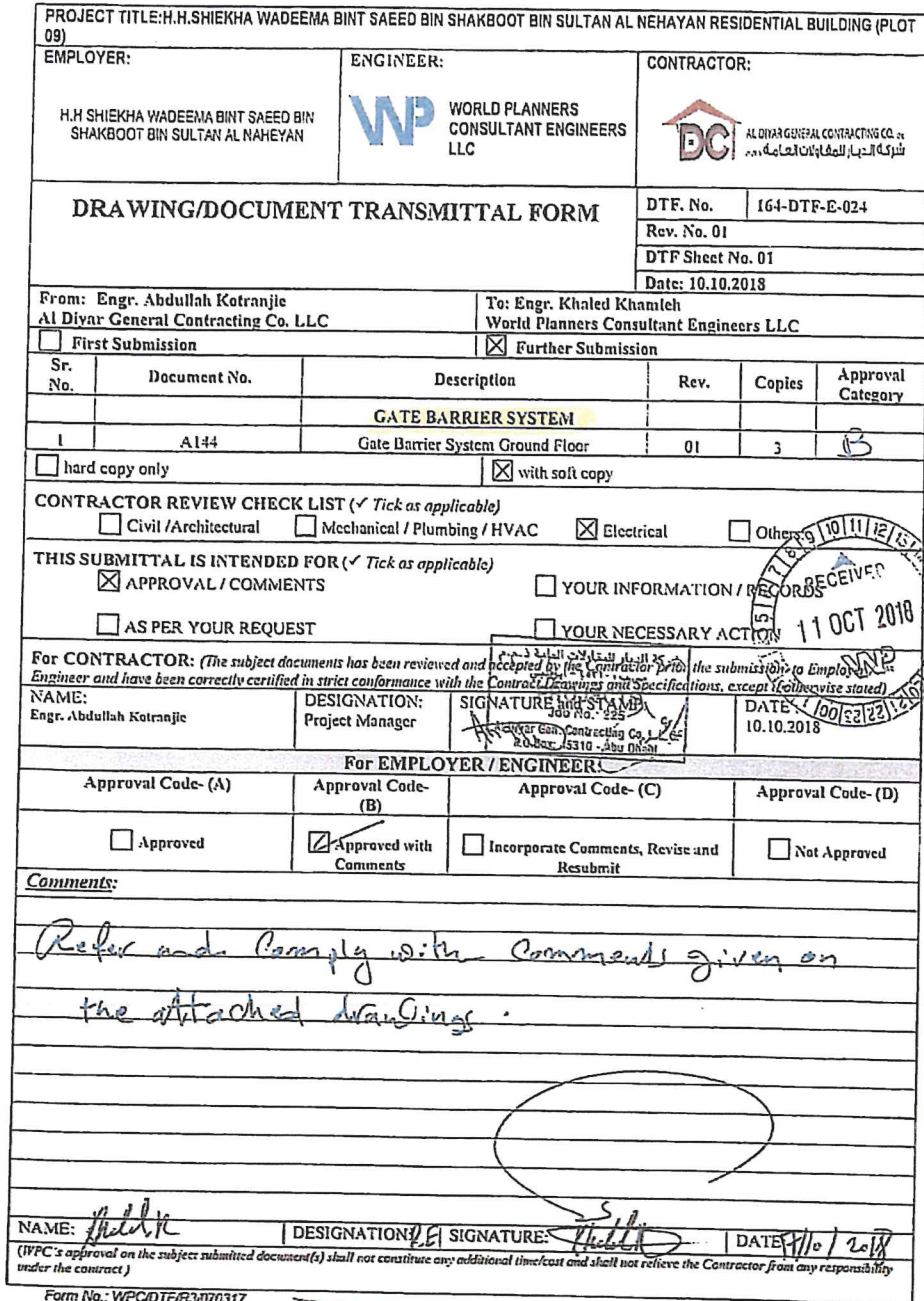 PROJECT TITLE:H.H.SHIEKHA WADEEMA BINT SAEED BIN SHAKBOOT BIN SULTAN AL NEHAYAN RESIDENTIAL BUILDING (PLOT
09)
EMPLOYER:
H.H SHIEKHA WADEEMA BINT SAEED BIN
SHAKBOOT BIN SULTAN AL NAHEYAN
ENGINEER:
WP
WORLD PLANNERS
CONSULTANT ENGINEERS
LLC
CONTRACTOR:
DC
AL DIYAR GENERAL CONTRACTING CO.
شركة الديار للمقاولات العامة
DRAWING/DOCUMENT TRANSMITTAL FORM
DTF. No. 164-DTF-E-024
Rev. No. 01
DTF Sheet No. 01
Date: 10.10.2018
From: Engr. Abdullah Kotranjie
Al Diyar General Contracting Co. LLC
To: Engr. Khaled Khamleh
World Planners Consultant Engineers LLC
First Submission
Further Submission
Sr. No. Document No. Description Rev. Copies Approval Category
GATE BARRIER SYSTEM
1 A144 Gate Barrier System Ground Floor 01 3 B
hard copy only
with soft copy
CONTRACTOR REVIEW CHECK LIST (✓ Tick as applicable)
Civil /Architectural Mechanical / Plumbing / HVAC Electrical Others
THIS SUBMITTAL IS INTENDED FOR (✓ Tick as applicable)
APPROVAL / COMMENTS YOUR INFORMATION / RECORDS
AS PER YOUR REQUEST YOUR NECESSARY ACTION
RECEIVED
11 OCT 2018
WP
For CONTRACTOR: (The subject documents has been reviewed and accepted by the Contractor prior the submission to Employer
Engineer and have been correctly certified in strict conformance with the Contract Drawings and Specifications, except if otherwise stated)
NAME:
Engr. Abdullah Kotranjie
DESIGNATION:
Project Manager
SIGNATURE and STAMP:
Job No.- 225
Diyar Gen. Contracting Co.
P.O.Box: 45310 - Abu Dhabi
DATE
10.10.2018
For EMPLOYER / ENGINEER:
Approval Code- (A) Approval Code- (B) Approval Code- (C) Approval Code- (D)
Approved
Approved with Comments
Incorporate Comments, Revise and Resubmit
Not Approved
Comments:
Refer and Comply with Comments given on
the attached drawings.
NAME: Khaled K DESIGNATION: R.E SIGNATURE: DATE
(WPC's approval on the subject submitted document(s) shall not constitute any additional time/cost and shall not relieve the Contractor from any responsibility
under the contract )
Form No.: WPC/DTF/R3/070317